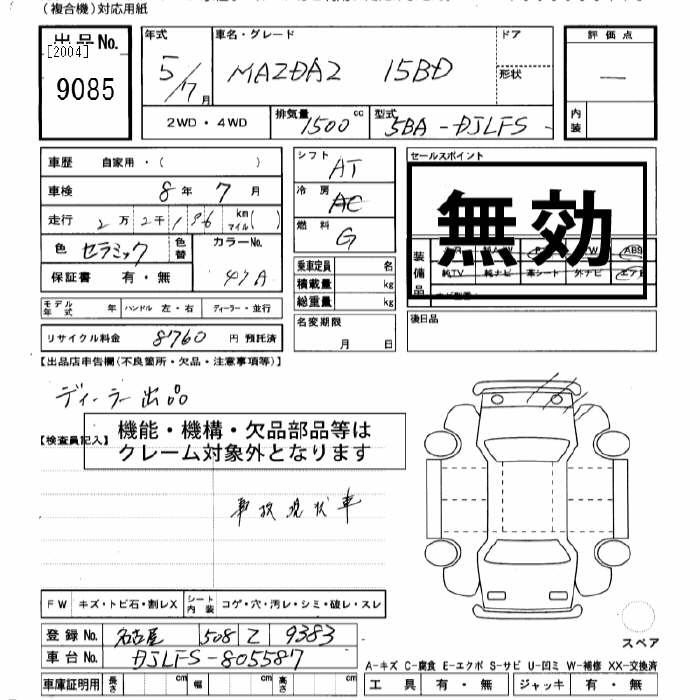 （複合機）対応用紙
出品No.
[2004]
9085
年式
5/7月
車名・グレード
MAZDA2 15BD
ドア
形状
評価点
—
内装
2WD・4WD
排気量
1500cc
型式
5BA-DJLFS
車歴 自家用・（ ）
車検 8年7月
走行 2万2千196km マイル( )
色 セラミック 色替 カラーNo. 47A
保証書 有・無
モデル年式 年 ハンドル 左・右 ディーラー・並行
リサイクル料金 8760 円 預託済
シフト AT
冷房 AC
燃料 G
乗車定員 名
積載量 kg
総重量 kg
名変期限
月 日
セールスポイント
無効
装備品
ABS
純TV 純ナビ 革シート 外ナビ エアB
後日品
【出品店申告欄（不良箇所・欠品・注意事項等）】
ディーラー出品
機能・機構・欠品部品等は
クレーム対象外となります
【検査員記入】
事故現状車
FW キズ・トビ石・割レX シート内装 コゲ・穴・汚レ・シミ・破レ・スレ
登録No. 名古屋 508 Z 9383
車台No. DJLFS-805587
車庫証明用 長さ cm 幅 cm 高さ cm
スペア
A-キズ C-腐食 E-エクボ S-サビ U-凹ミ W-補修 XX-交換済
工具 有・無 ジャッキ 有・無